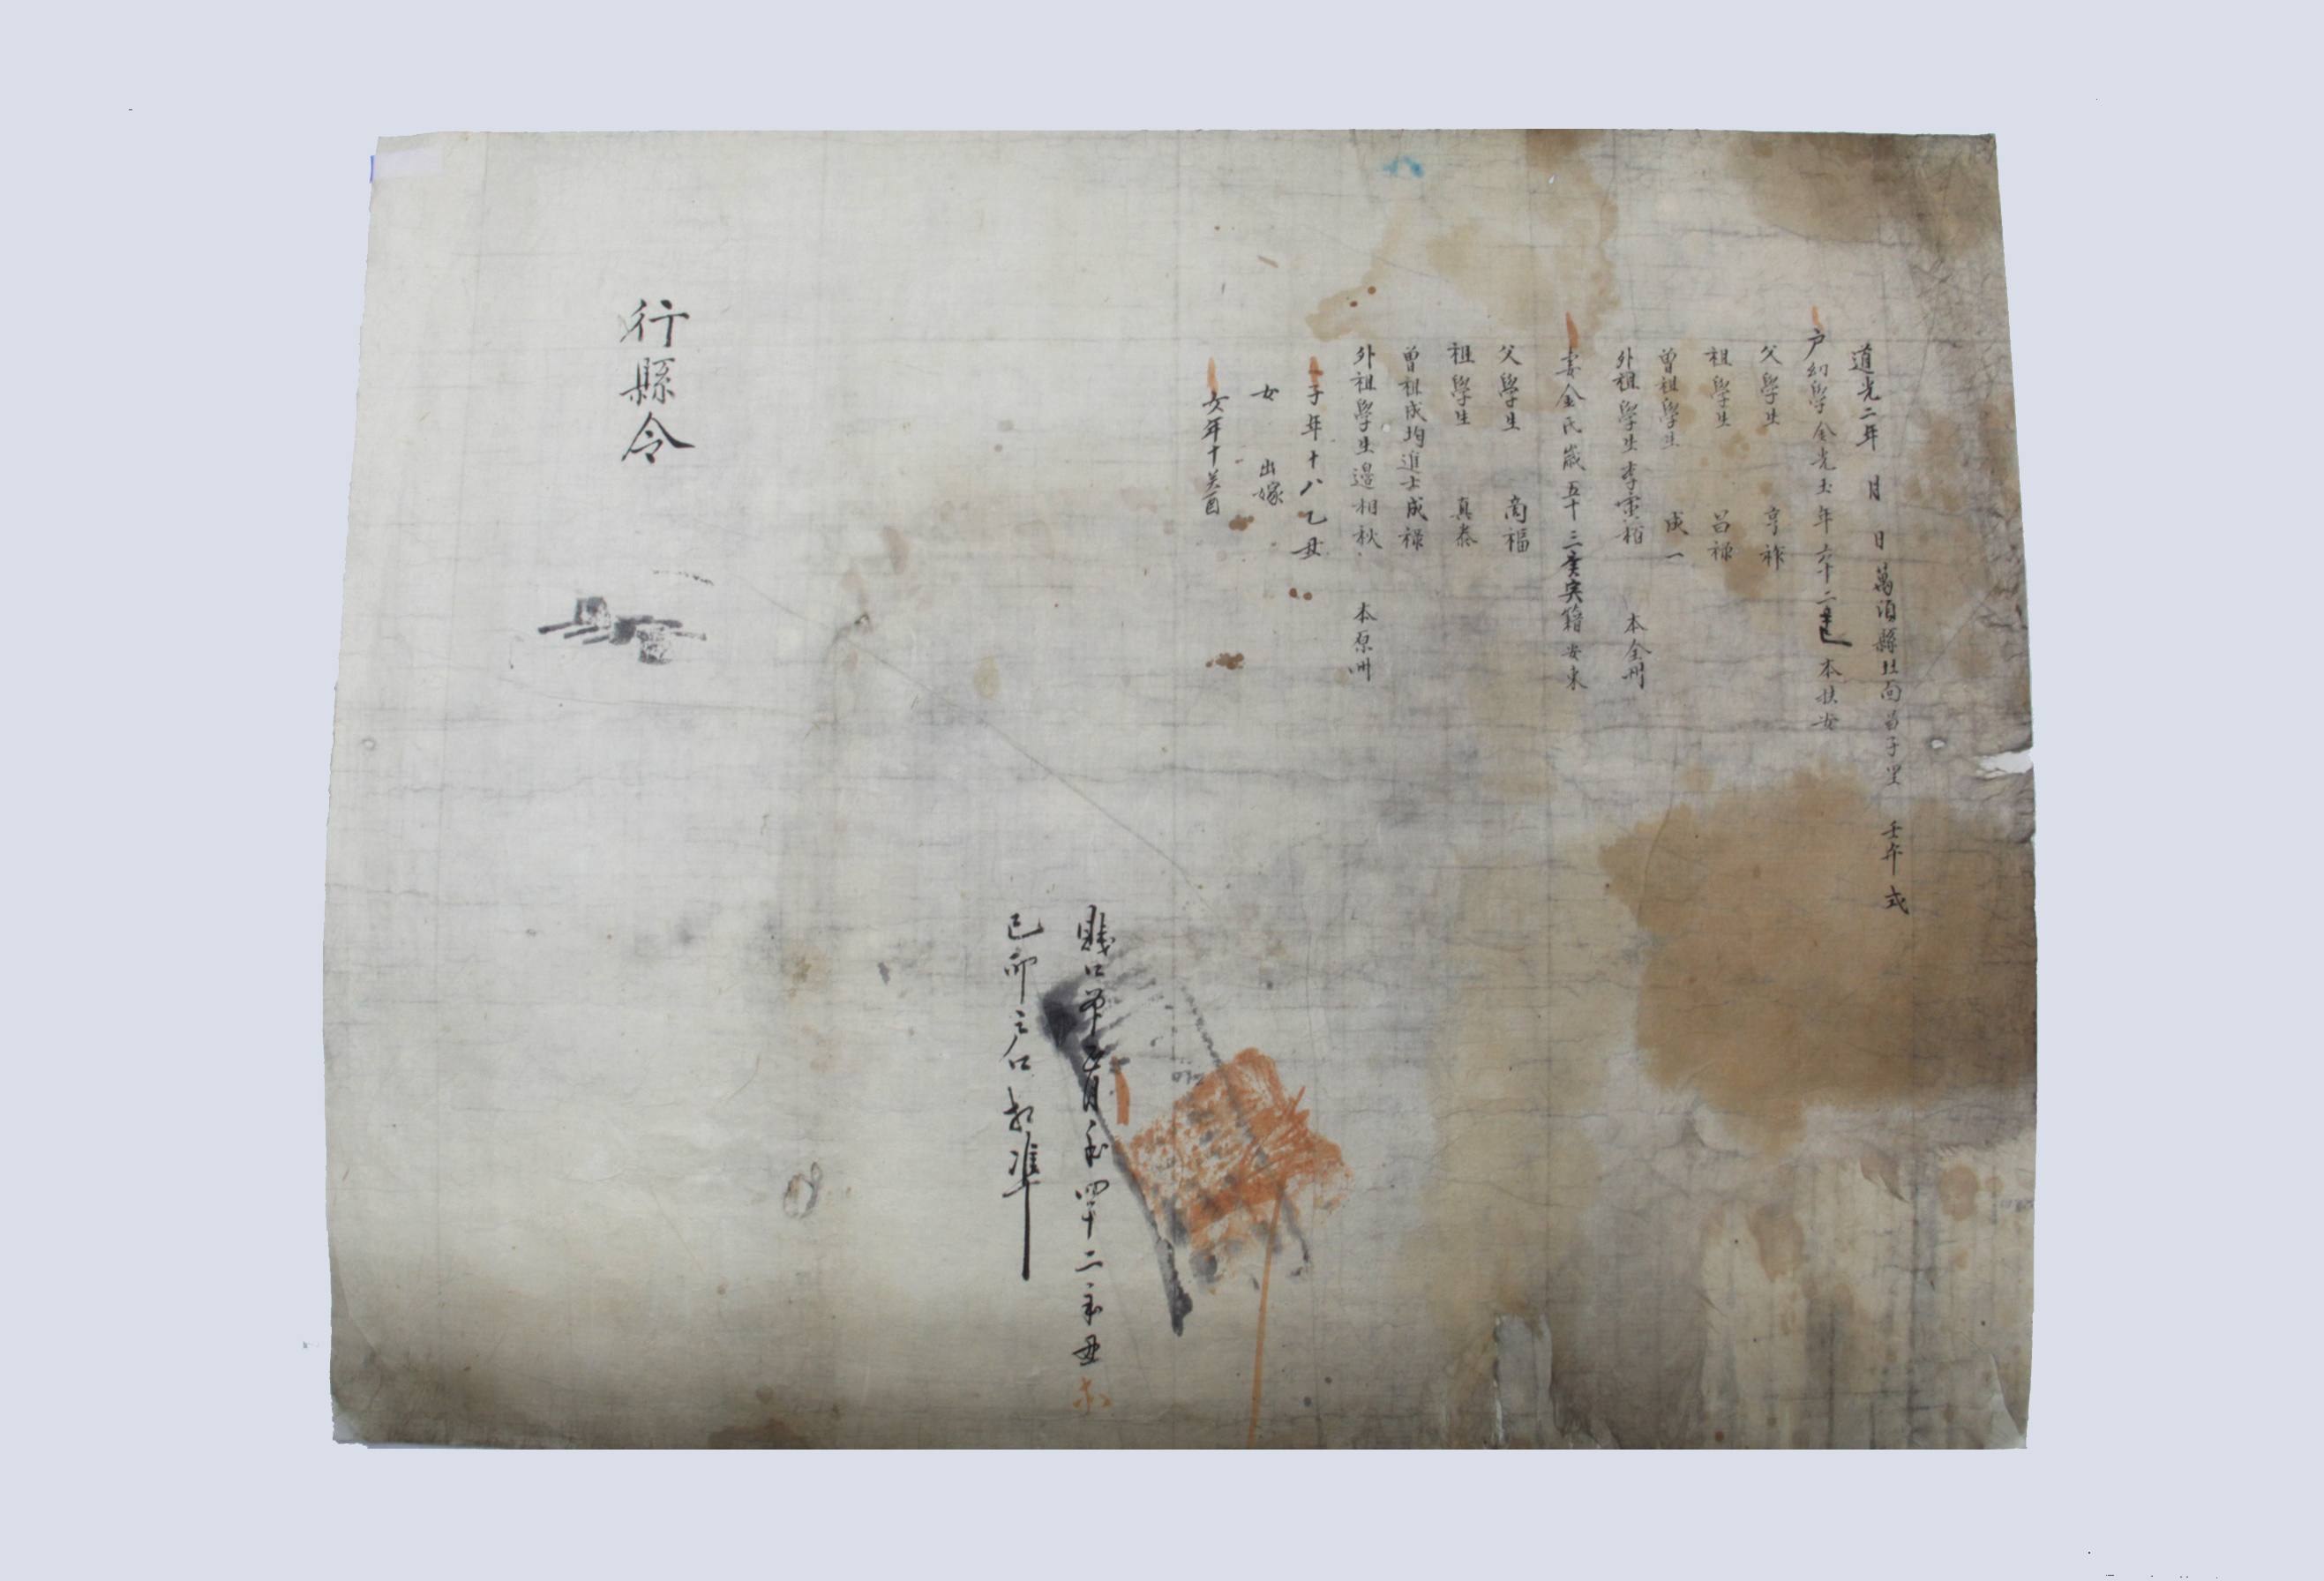 道光二年 月 日 萬頃縣北面 子里 壬午式
戶幼學金光玉年六十二 本扶安
父學生 亨祚
祖學生 昌祿
曾祖學生 成一
外祖學生李重 本全州
妻金氏歲五十三 籍安東
父學生 尚福
祖學生 真泰
曾祖成均進士成祿
外祖學生邊相秋 本原州
子年十八乙丑
女 出嫁
女年十癸酉
賤口 年四十二辛丑
己卯戶口相准
行縣令